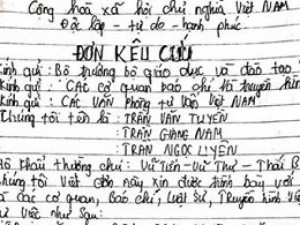 Cộng hoà xã hội chủ nghĩa Việt NAM
Độc lập - tự do - hạnh phúc
ĐƠN KÊU CỨU
Kính gửi: Bộ trưởng bộ giáo dục và đào tạo
Kính gửi: CÁC cơ quan báo chí và truyền hình
Kính gửi: CÁC VĂN Phòng tư VẤN Việt NAM
Chúng tôi tên là: TRẦN VĂN TUYÊN
: TRẦN GIANG NAM
: TRẦN NGỌC LUYỆN
Hộ khẩu thường chú: Vũ Tiến - Vũ Thư - Thái B
húng tôi Viết đơn này xin được trình bày với
à các cơ quan, Báo chí, luật Sư, Truyền hình Việ
sự việc như sau: